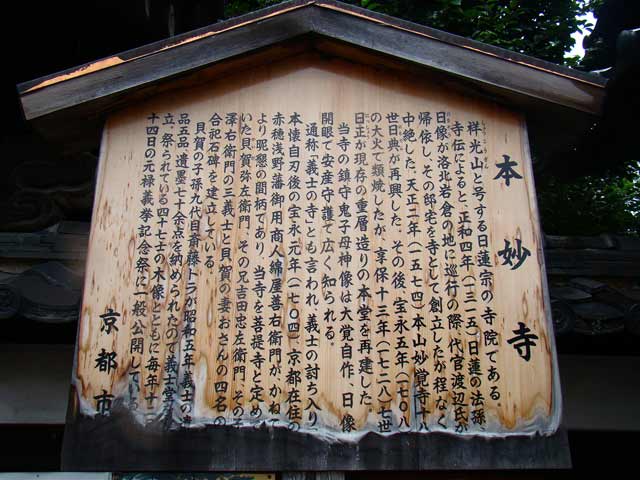 本妙寺
祥光山と号する日蓮宗の寺院である。
寺伝によると、正和四年(一三一五)日蓮の法孫
日像が洛北岩倉の地に巡行の際、代官渡辺氏が
帰依し、その邸宅を寺として創立したが程なく
中絶した。天正二年(一五七四)本山妙覚寺十八
世日典が再興した。その後、宝永五年(一七〇八)
の大火で類焼したが、享保十三年(一七二八)七世
日正が現存の重層造りの本堂を再建した。
当寺の鎮守鬼子母神像は大覚自作、日像
開眼で安産守護で広く知られる。
通称「義士の寺」とも言われ、義士の討ち入り
本懐自刃後の宝永元年(一七〇四)、京都在住の
赤穂浅野藩御用商人綿屋善右衛門が、かねて
より昵懇の間柄であり、当寺を菩提寺と定め
いた貝賀弥左衛門、その兄吉田忠左衛門、その子
澤右衛門の三義士と貝賀の妻おさんの四名の
合祀石碑を建立している。
貝賀の子孫九代目斎藤トラが昭和五年、義士の
品五品、遺墨七十余点を納められたので義士堂
立、祭られている四十七士の木像とともに毎年十二
十四日の元禄義挙記念祭に一般公開して
京都市